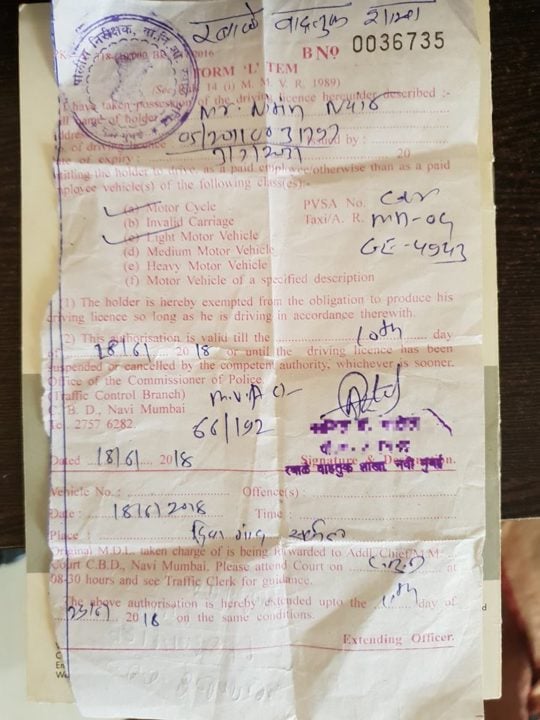 रबाळे वाहतुक शाखा
B No 0036735
FORM 'L' TEM
14 (i) M. M. V. R. 1989)
have taken possession of the driving licence hereunder described :-
name of holder Mr. Nitin
of driving licence Issued by :
of expiry : 20
the holder to drive, as a paid employee/otherwise than as a paid
employee vehicle(s) of the following class(es):-
(a) Motor Cycle
PVSA No. Car
(b) Invalid Carriage
Taxi/A. R. MH-04
(c) Light Motor Vehicle
GE-4943
(d) Medium Motor Vehicle
(e) Heavy Motor Vehicle
(f) Motor Vehicle of a specified description
(1) The holder is hereby exempted from the obligation to produce his
driving licence so long as he is driving in accordance therewith.
(2) This authorisation is valid till the 10th day
of 18/6/ 2018 or until the driving licence has been
suspended or cancelled by the competent authority, whichever is sooner.
Office of the Commissioner of Police,
(Traffic Control Branch)
M.V.A
C. B. D., Navi Mumbai
Tel 2757 6282
66/192
रबाळे वाहतुक शाखा, नवी मुंबई
Dated 18/6/ 2018
Signature & Designation.
Vehicle No. : Offence(s) :
Date : 18/6/2018 Time :
Place :
Original M.D.L. taken charge of is being forwarded to Addl. Chief M.M.
Court C.B.D., Navi Mumbai. Please attend Court on C.B.D at
08-30 hours and see Traffic Clerk for guidance.
The above authorisation is hereby extended upto the 10th day of
2018 on the same conditions.
Extending Officer.